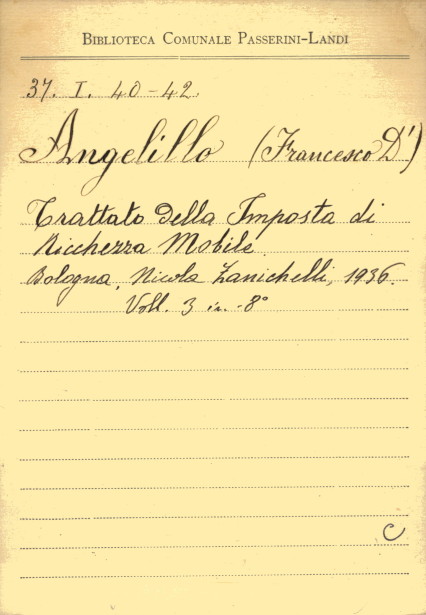 BIBLIOTECA COMUNALE PASSERINI-LANDI
37. I. 40-42.
Angelillo (Francesco D')
Trattato della Imposta di
Ricchezza Mobile.
Bologna, Nicola Zanichelli, 1936.
Voll. 3 in-8°
C